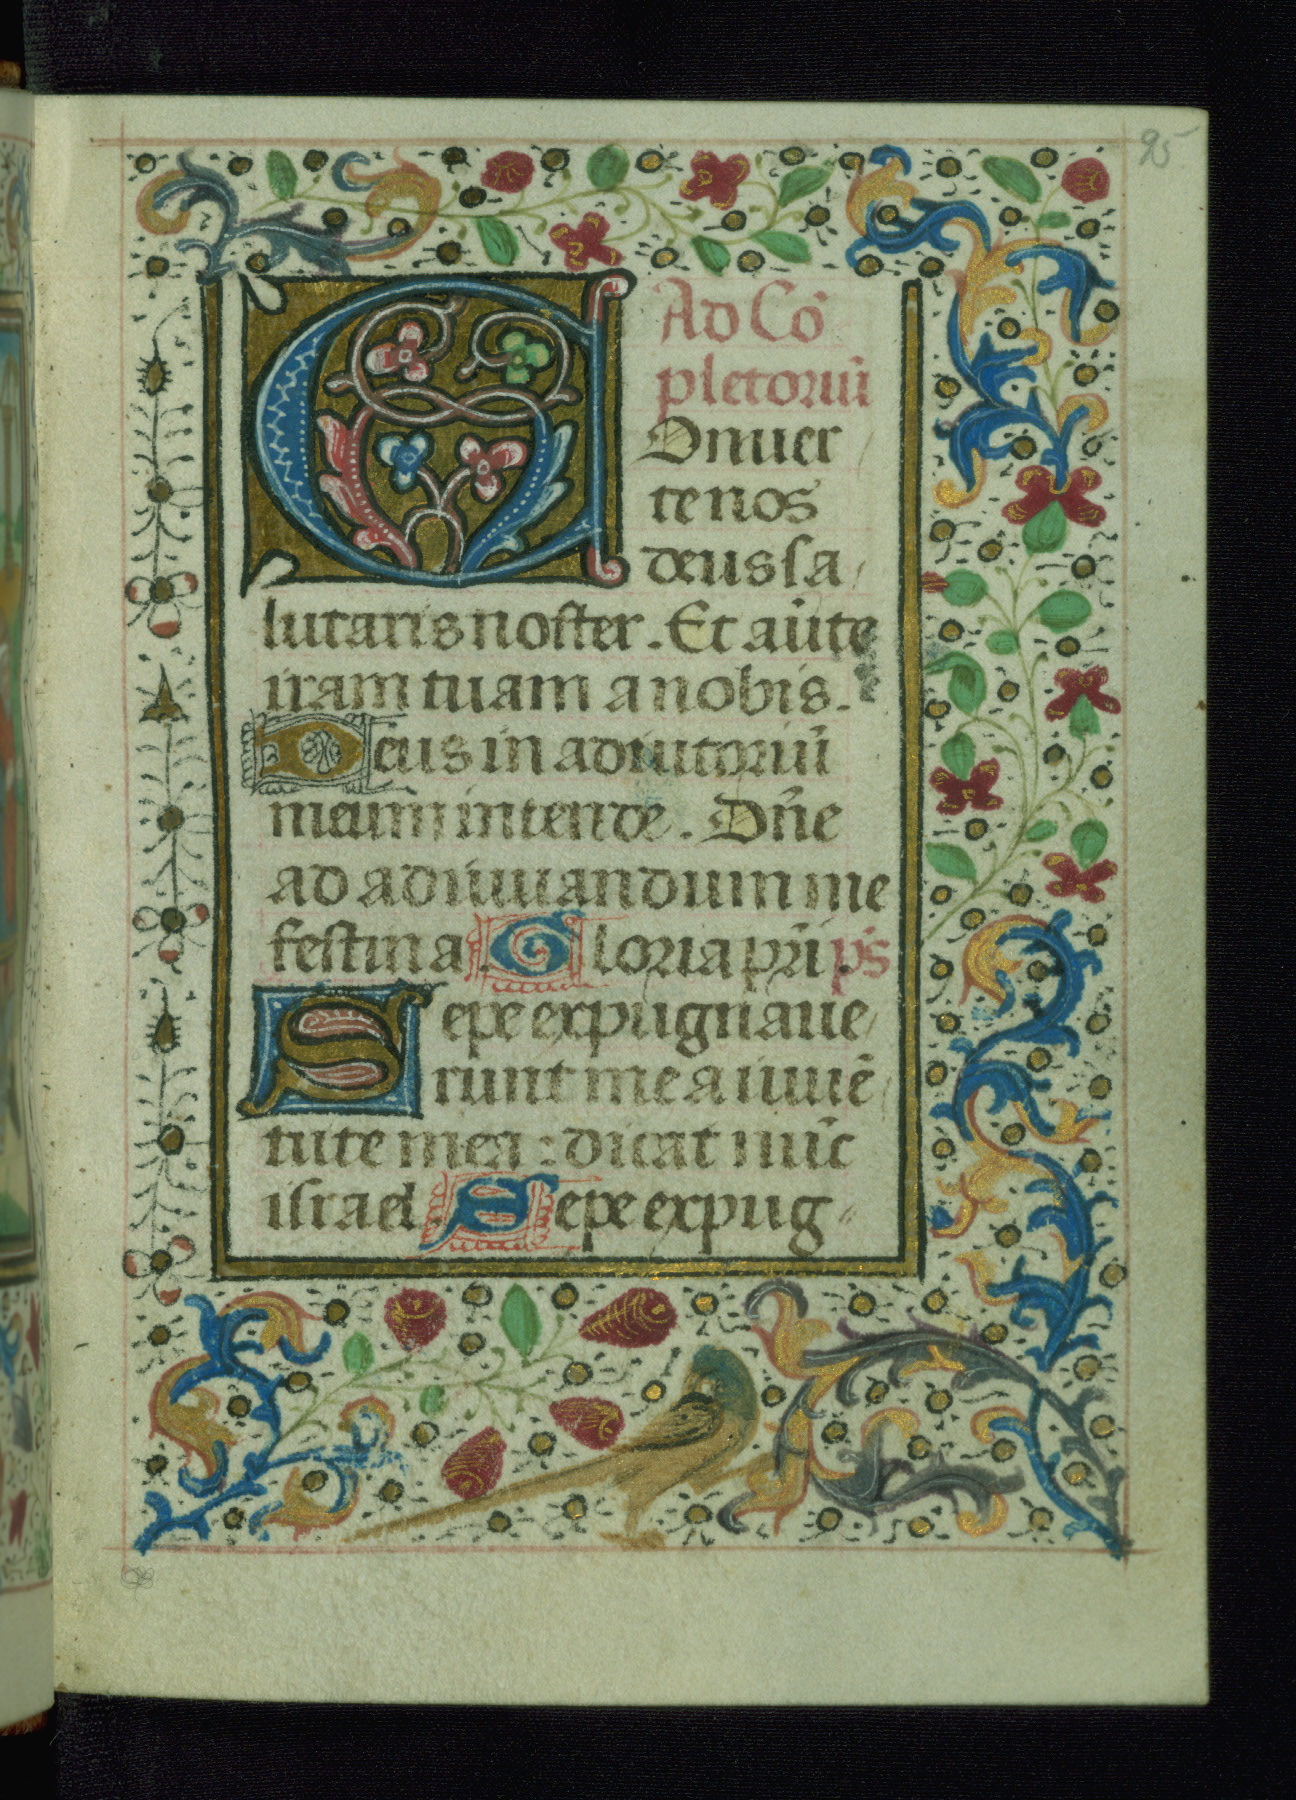 95
Ad Cō
pletoriū
Conuer
te nos
deus sa
lutaris noster. Et auīte
iram tuam a nobis.
Deus in adiutoriū
meum intende. Dn̄e
ad adiuuandum me
festina. Gloria pr̄i. ps̄
Sepe expugnaue
runt me a iuuē
tute mea : dicat nūc
israel. Sepe expug